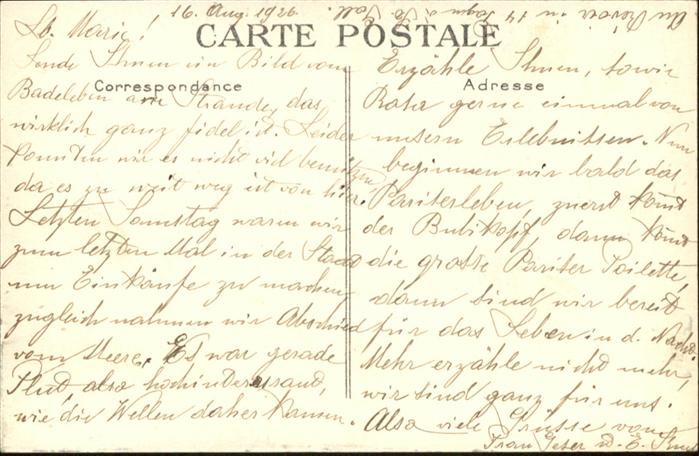 16. Aug. 1926.
Au Revoir in 14
Tagen à St. Gall.
CARTE POSTALE
Correspondance
Adresse
Lb. Marie!
Sende Ihnen ein Bild vom
Badeleben am Strande, das
wirklich ganz fidel ist. Leider
konnten wir es nicht viel benützen
da es zu weit weg ist von hier.
Letzten Samstag waren wir
zum letzten Mal in der Stadt
um Einkäufe zu machen,
zugleich nahmen wir Abschied
vom Meere. Es war gerade
Flut, also hochinteressant,
wie die Wellen daher kamen.
Erzähle Ihnen, sowie
Rosa gerne einmal von
unsern Erlebnissen. Nun
beginnen wir bald das
Pariserleben, zuerst kömt
der Bubikopf, dann kömt
die grosse Pariser Toilette,
dann sind wir bereit
für das Leben in d. Nacht.
Mehr erzähle nicht mehr,
wir sind ganz für uns.
Also viele Grüsse von
Frau u. E.